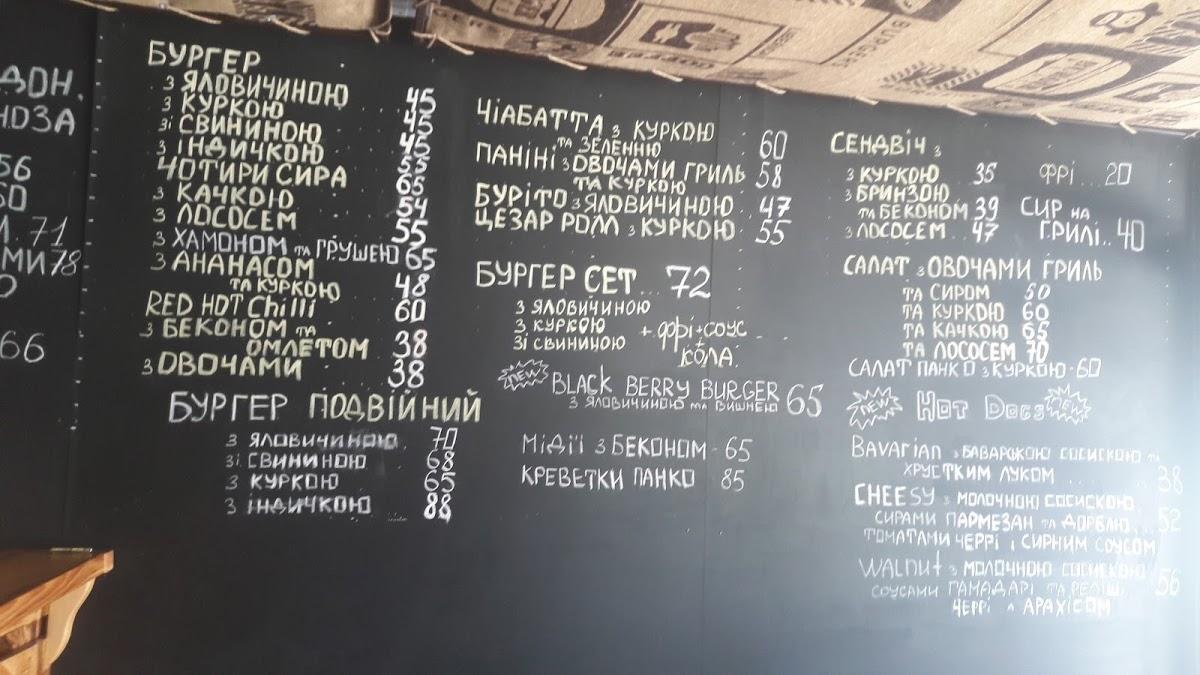 ДОН.
НОЗА
56
71
МИ 78
66
БУРГЕР
З ЯЛОВИЧИНОЮ 45
З КУРКОЮ 45
ЗІ СВИНИНОЮ 45
З ІНДИЧКОЮ 53
ЧОТИРИ СИРА 65
З КАЧКОЮ 54
З ЛОСОСЕМ 55
З ХАМОНОМ ТА ГРУШЕЮ 65
З АНАНАСОМ
ТА КУРКОЮ 48
RED HOT Chilli 60
З БЕКОНОМ ТА
ОМЛЕТОМ 38
З ОВОЧАМИ 38
БУРГЕР ПОДВІЙНИЙ
З ЯЛОВИЧИНОЮ 70
ЗІ СВИНИНОЮ 68
З КУРКОЮ 65
З ІНДИЧКОЮ 88
ЧІАБАТТА З КУРКОЮ
ТА ЗЕЛЕННЮ 60
ПАНІНІ З ОВОЧАМИ ГРИЛЬ
ТА КУРКОЮ 58
БУРІТО З ЯЛОВИЧИНОЮ 47
ЦЕЗАР РОЛЛ З КУРКОЮ 55
БУРГЕР СЕТ... 72
З ЯЛОВИЧИНОЮ
З КУРКОЮ
ЗІ СВИНИНОЮ
+ ФРІ + СОУС
+
КОЛА.
NEW BLACK BERRY BURGER 65
З ЯЛОВИЧИНОЮ ТА ВИШНЕЮ
МІДІЇ З БЕКОНОМ - 65
КРЕВЕТКИ ПАНКО 85
СЕНДВІЧ З
З КУРКОЮ 35
З БРИНЗОЮ
ТА БЕКОНОМ 39
З ЛОСОСЕМ 47
ФРІ...20
СИР НА
ГРИЛІ.. 40
САЛАТ З ОВОЧАМИ ГРИЛЬ
ТА СИРОМ 50
ТА КУРКОЮ 60
ТА КАЧКОЮ 65
ТА ЛОСОСЕМ 70
САЛАТ ПАНКО З КУРКОЮ - 60
NEW HOT DOGS NEW
BAVARIAN З БАВАРСЬКОЮ СОСИСКОЮ ТА
ХРУСТКИМ ЛУКОМ 38
CHEESY З МОЛОЧНОЮ СОСИСКОЮ
СИРАМИ ПАРМЕЗАН ТА ДОРБЛЮ, 52
ТОМАТАМИ ЧЕРРІ І СИРНИМ СОУСОМ
WALNUT З МОЛОЧНОЮ СОСИСКОЮ
СОУСАМИ ГАМАДАРІ ТА РЕЛІШ 56
ЧЕРРІ АРАХІСОМ